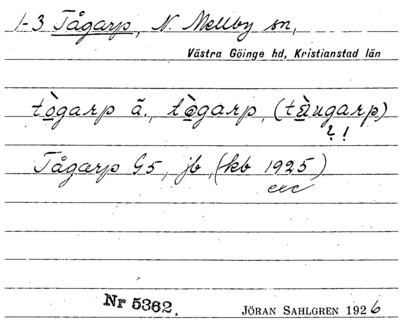 1-3 Tågarp, N. Mellby sn,
Västra Göinge hd, Kristianstad län
tò̱garp ä., tò̱garp, (tæ̱̀ugarp)
? !
Tågarp G5, jb, (kb 1925)
etc
Nr 5362.
JÖRAN SAHLGREN 1926